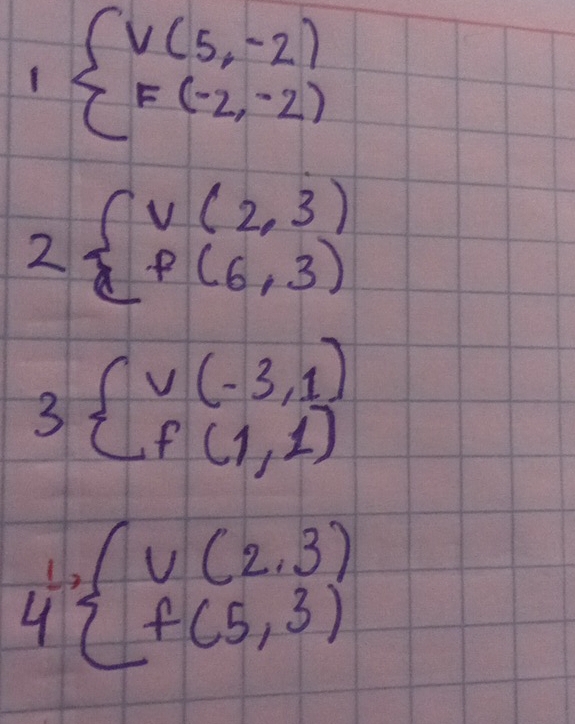 1 { V (5, -2)
F (-2, -2)
2 { V (2, 3)
f (6, 3)
3 { V (-3, 1)
f (1, 1)
4 { V (2.3)
f (5, 3)